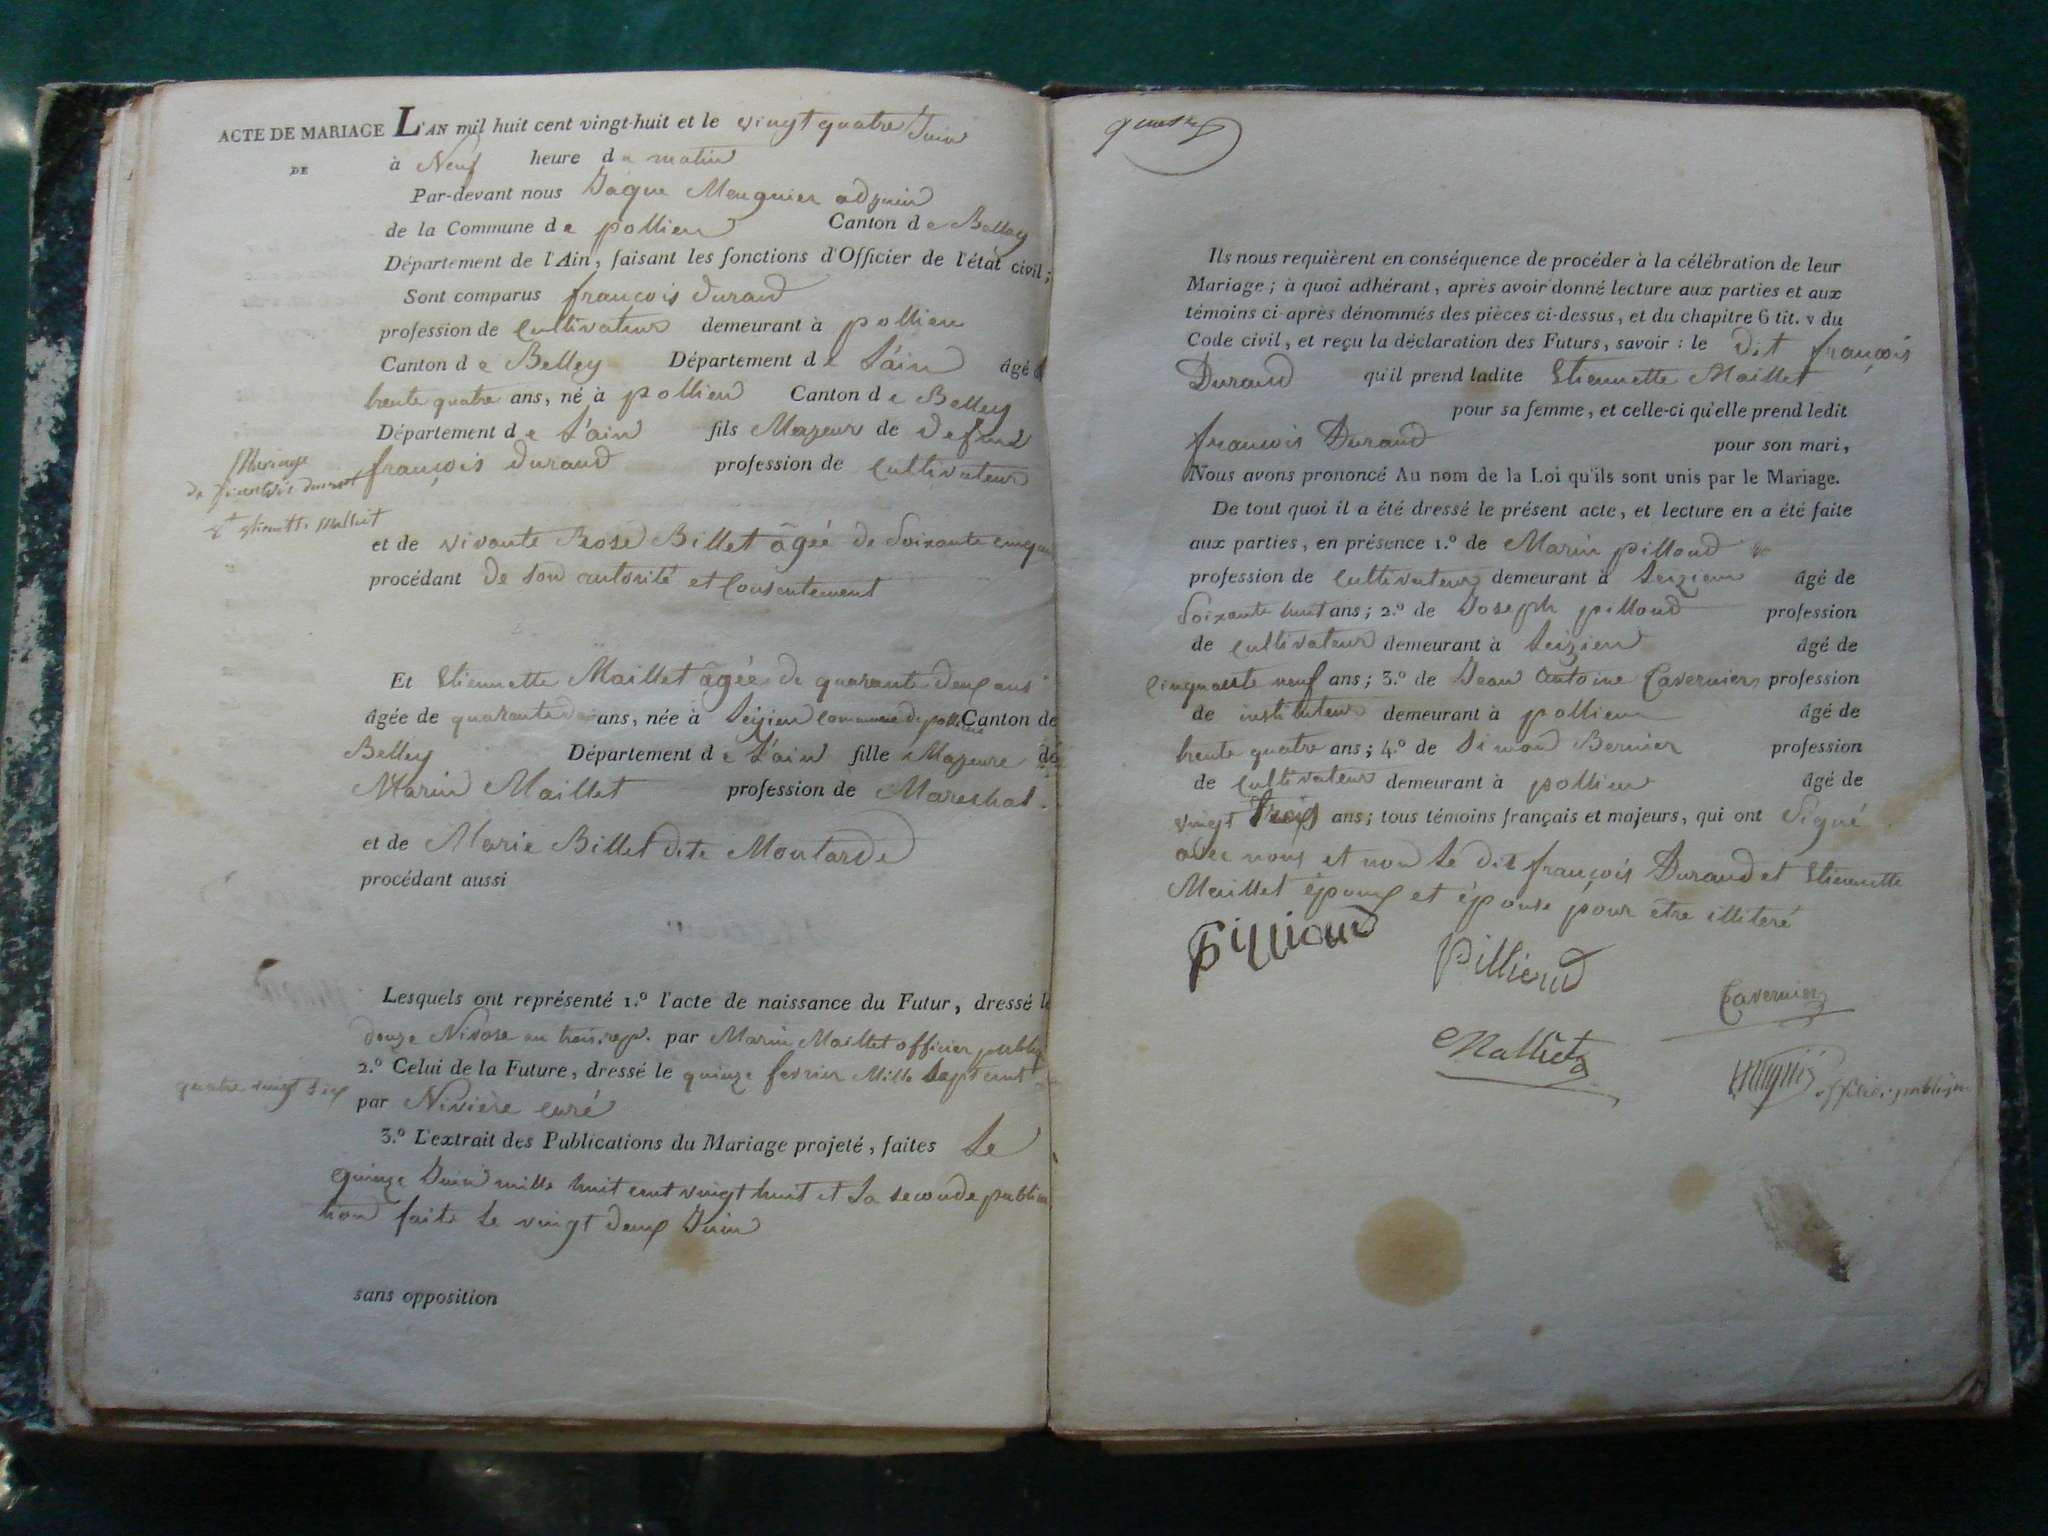 ACTE DE MARIAGE L'AN mil huit cent vingt-huit et le vingt quatre Juin
DE
à Neuf heure du matin
Par-devant nous Jaque Meugnier adjoin
de la Commune de pollieu Canton de Belley
Département de l'Ain, faisant les fonctions d'Officier de l'état civil;
Sont comparus françois durand
profession de Cultivateur demeurant à pollieu
Canton de Belley Département de L'ain âgé d
trente quatre ans, né à pollieu Canton de Belley
Département de L'ain fils Majeur de defund
françois durand profession de Cultivateur
Mariage
de françois durand
et de vivante Rose Billet âgée de Soixante cinq
procédant de son autorité et Consentement
Et Etiennette Maillet âgée de quarante deux ans
âgée de quarante deux ans, née à Seizieu Commune de pollieu Canton de
Belley Département de L'ain fille Majeure de
Marin Maillet profession de Mareshal
et de Marie Billet dite Moutarde
procédant aussi
Lesquels ont représenté 1.º l'acte de naissance du Futur, dressé le
douze Nivose an trois rep. par Marin Maillet officier public
2.º Celui de la Future, dressé le quinze fevrier Mille Sept cent
quatre vingt six
par Nivière curé
3.º L'extrait des Publications du Mariage projeté, faites Le
quinze Juin mille huit cent vingt huit et La seconde publica
tion faite Le vingt deux Juin
sans opposition
Ils nous requièrent en conséquence de procéder à la célébration de leur
Mariage; à quoi adhérant, après avoir donné lecture aux parties et aux
témoins ci-après dénommés des pièces ci-dessus, et du chapitre 6 tit. v du
Code civil, et reçu la déclaration des Futurs, savoir: le dit françois
Durand qu'il prend ladite Etiennette Maillet
pour sa femme, et celle-ci qu'elle prend ledit
françois Durand pour son mari,
Nous avons prononcé Au nom de la Loi qu'ils sont unis par le Mariage.
De tout quoi il a été dressé le présent acte, et lecture en a été faite
aux parties, en présence 1.º de Marin pilloud
profession de Cultivateur demeurant à Seizieu âgé de
Soixante huit ans; 2.º de Joseph pilloud profession
de Cultivateur demeurant à Seizieu âgé de
Cinquante neuf ans; 3.º de Jean Antoine Tavernier profession
de instituteur demeurant à pollieu âgé de
trente quatre ans; 4.º de Simon Bernier profession
de Cultivateur demeurant à pollieu âgé de
vingt trois ans; tous témoins français et majeurs, qui ont Signé
avec nous et non Le dit françois Durand et Etiennette
Maillet époux et épouse pour etre illiteré
Pillioud
Pillioud
Tavernier
Malliet
officier publique